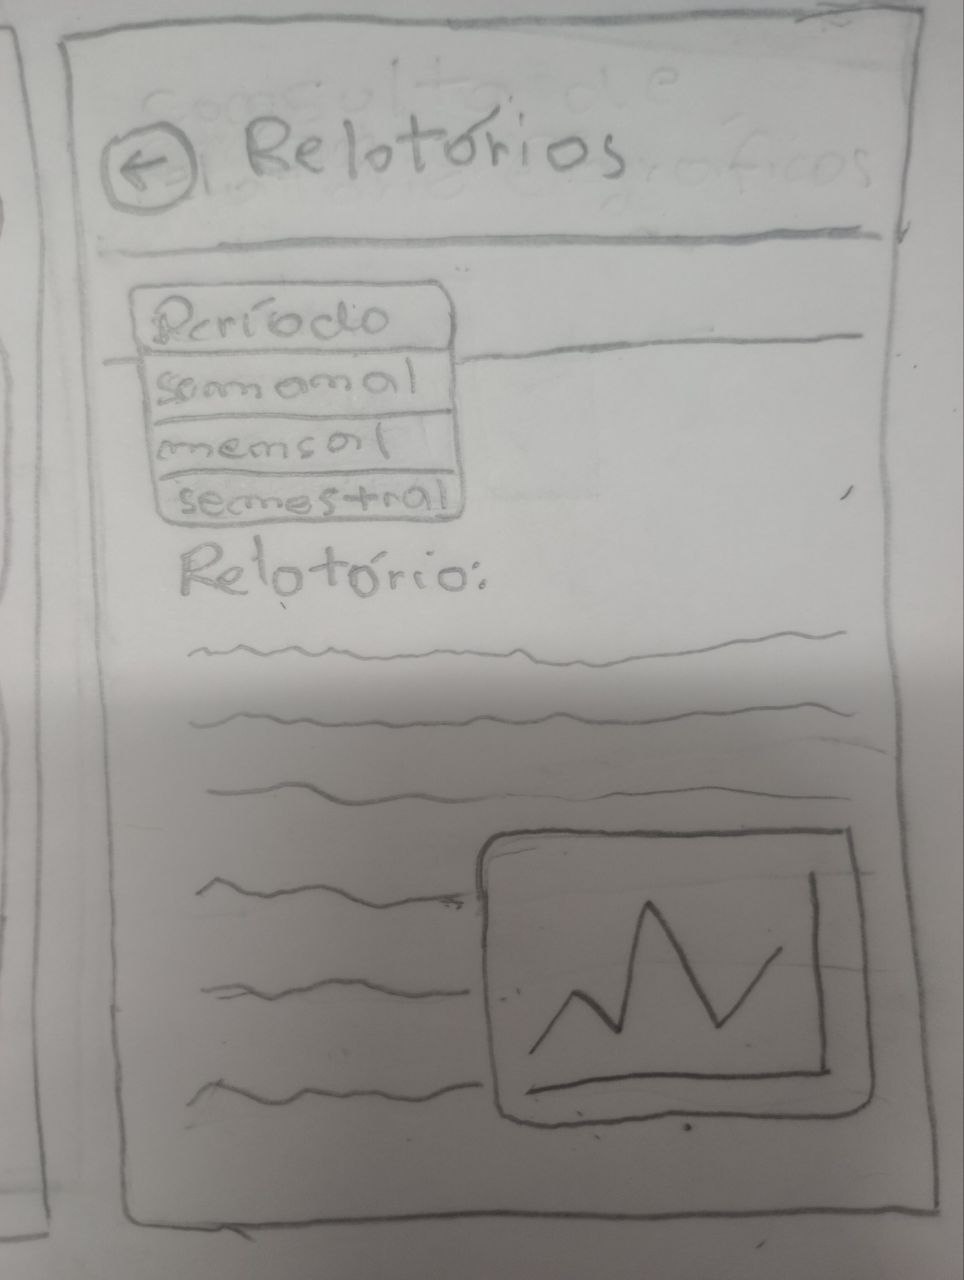 Relatórios
Período
semanal
mensal
semestral
Relatório: